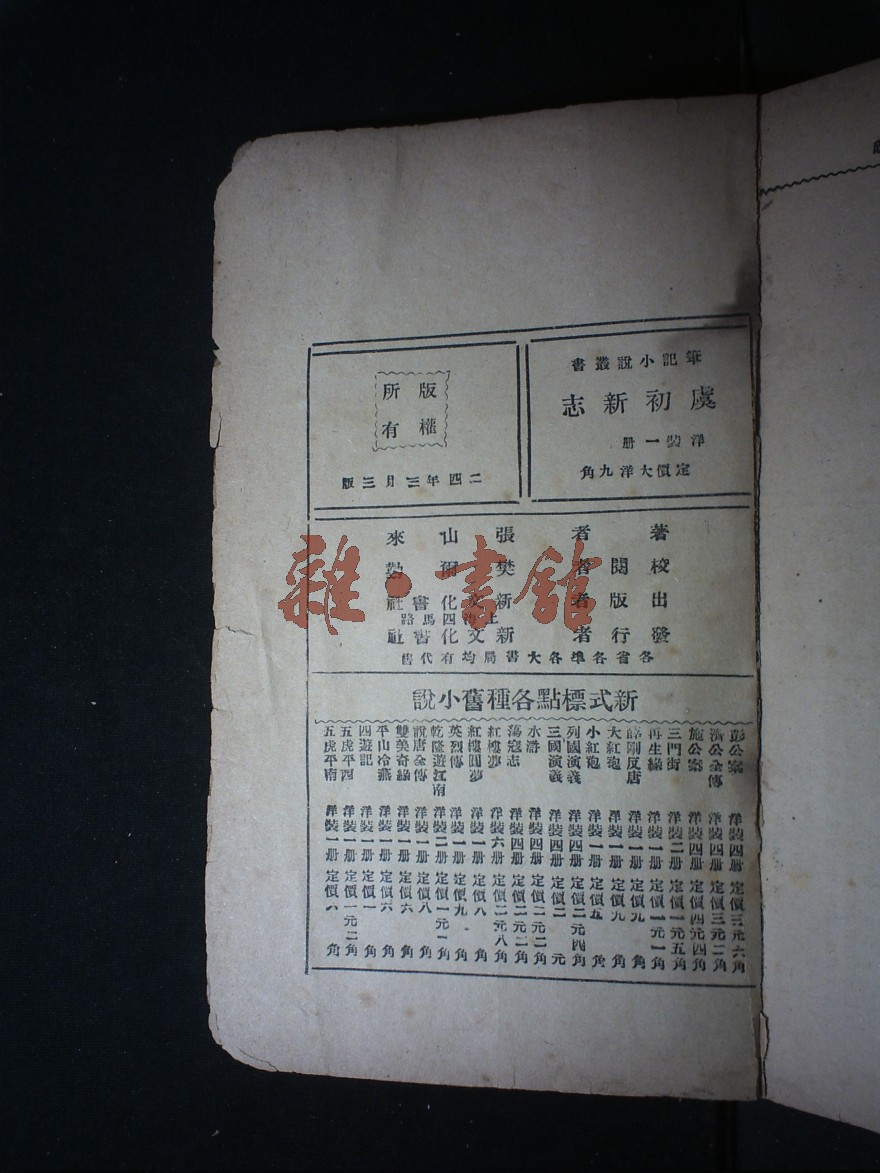 筆記小說叢書
虞初新志
洋裝一册
定價大洋九角
版權
所有
二四年三月三版
著者 張山來
校閱者 樊爾勤
出版者 新文化書社
上海四馬路
發行者 新文化書社
各省各埠各大書局均有代售
新式標點各種舊小說
彭公案 洋裝四册 定價三元六角
濟公全傳 洋裝四册 定價三元二角
施公案 洋裝四册 定價四元四角
三門街 洋裝二册 定價一元五角
再生緣 洋裝一册 定價一元一角
薛剛反唐 洋裝一册 定價九角
大紅袍 洋裝一册 定價九角
小紅袍 洋裝一册 定價五角
列國演義 洋裝四册 定價二元四角
三國演義 洋裝四册 定價二元
水滸 洋裝四册 定價二元二角
蕩寇志 洋裝四册 定價二元二角
紅樓夢 洋裝六册 定價二元八角
紅樓圓夢 洋裝一册 定價八角
英烈傳 洋裝一册 定價九角
乾隆遊江南 洋裝二册 定價一元一角
說唐全傳 洋裝一册 定價八角
雙美奇緣 洋裝一册 定價六角
平山冷燕 洋裝一册 定價六角
四遊記 洋裝一册 定價一角
五虎平西 洋裝一册 定價一元二角
五虎平南 洋裝一册 定價六角
雜·書館